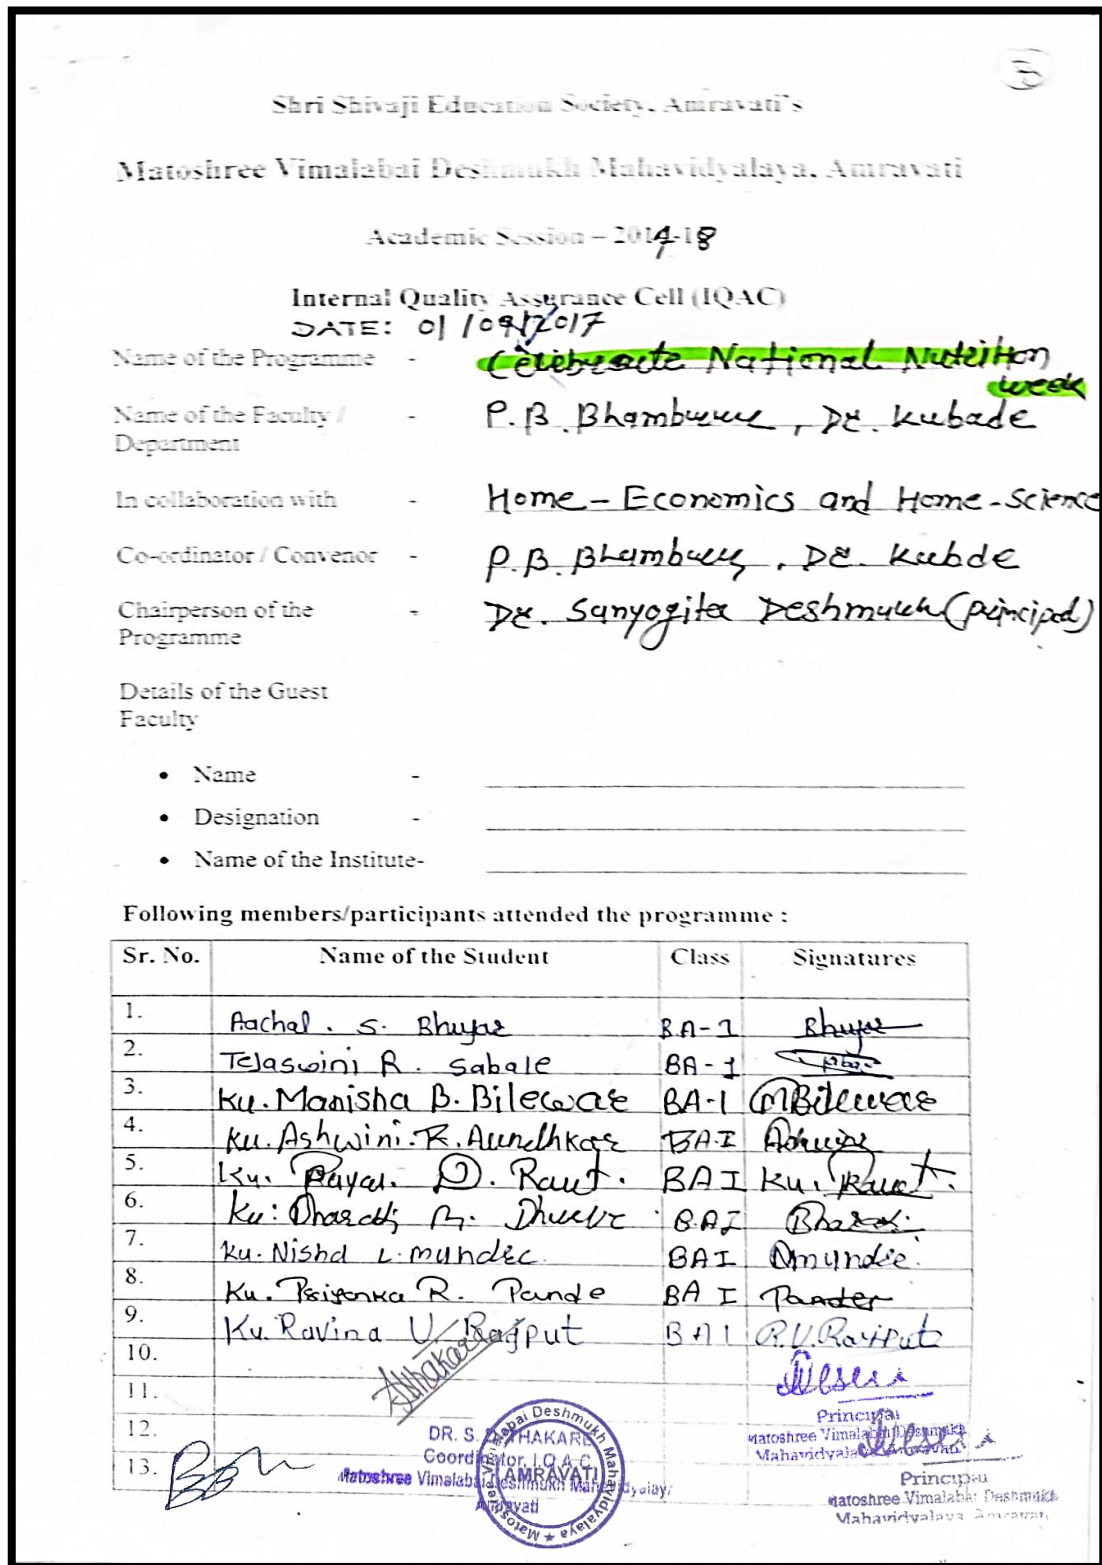 Shri Shivaji Education Society, Amravati's
Matoshree Vimalabai Deshmukh Mahavidyalaya, Amravati
Academic Session – 2017-18
Internal Quality Assurance Cell (IQAC)
DATE: 01/09/2017
Name of the Programme - Celebrate National Nutrition
week
Name of the Faculty / - P.B. Bhambure, Dr. Kubade
Department
In collaboration with - Home-Economics and Home-science
Co-ordinator / Convenor - P.B. , Dr. Kubde
Chairperson of the - Dr. Sanyogita Deshmukh (principal)
Programme
Details of the Guest
Faculty
• Name -
• Designation -
• Name of the Institute-
Following members/participants attended the programme :
Sr. No. Name of the Student Class Signatures
1. Aachal. S. Bhuyar BA-1 Bhuyar
2. Tejaswini R. Sabale BA-1
3. Ku. Manisha B. Bilewar BA-I MBilewar
4. Ku. Ashwini. R. Aundhkar BA-I
5. Ku. Payal. D. Raut. BA I Ku. Raut.
6. Ku: B.AI
7. Ku. Nisha L. mundre. BAI
8. Ku. Priyanka R. Pande BA I Pande
9. Ku. Ravina U. Rajput BAI R.U. Rajput
10.
11.
12.
13.
DR. S. THAKARE
Coordinator, I.Q.A.C.
Matoshree Vimalabai Deshmukh Mahavidyalay
Amravati
Matoshree Vimalabai Deshmukh Mahavidyalaya ★
AMRAVATI
Principal
Matoshree Vimalabai Deshmukh
Mahavidyalaya Amravati
Principal
Matoshree Vimalabai Deshmukh
Mahavidyalaya Amravati